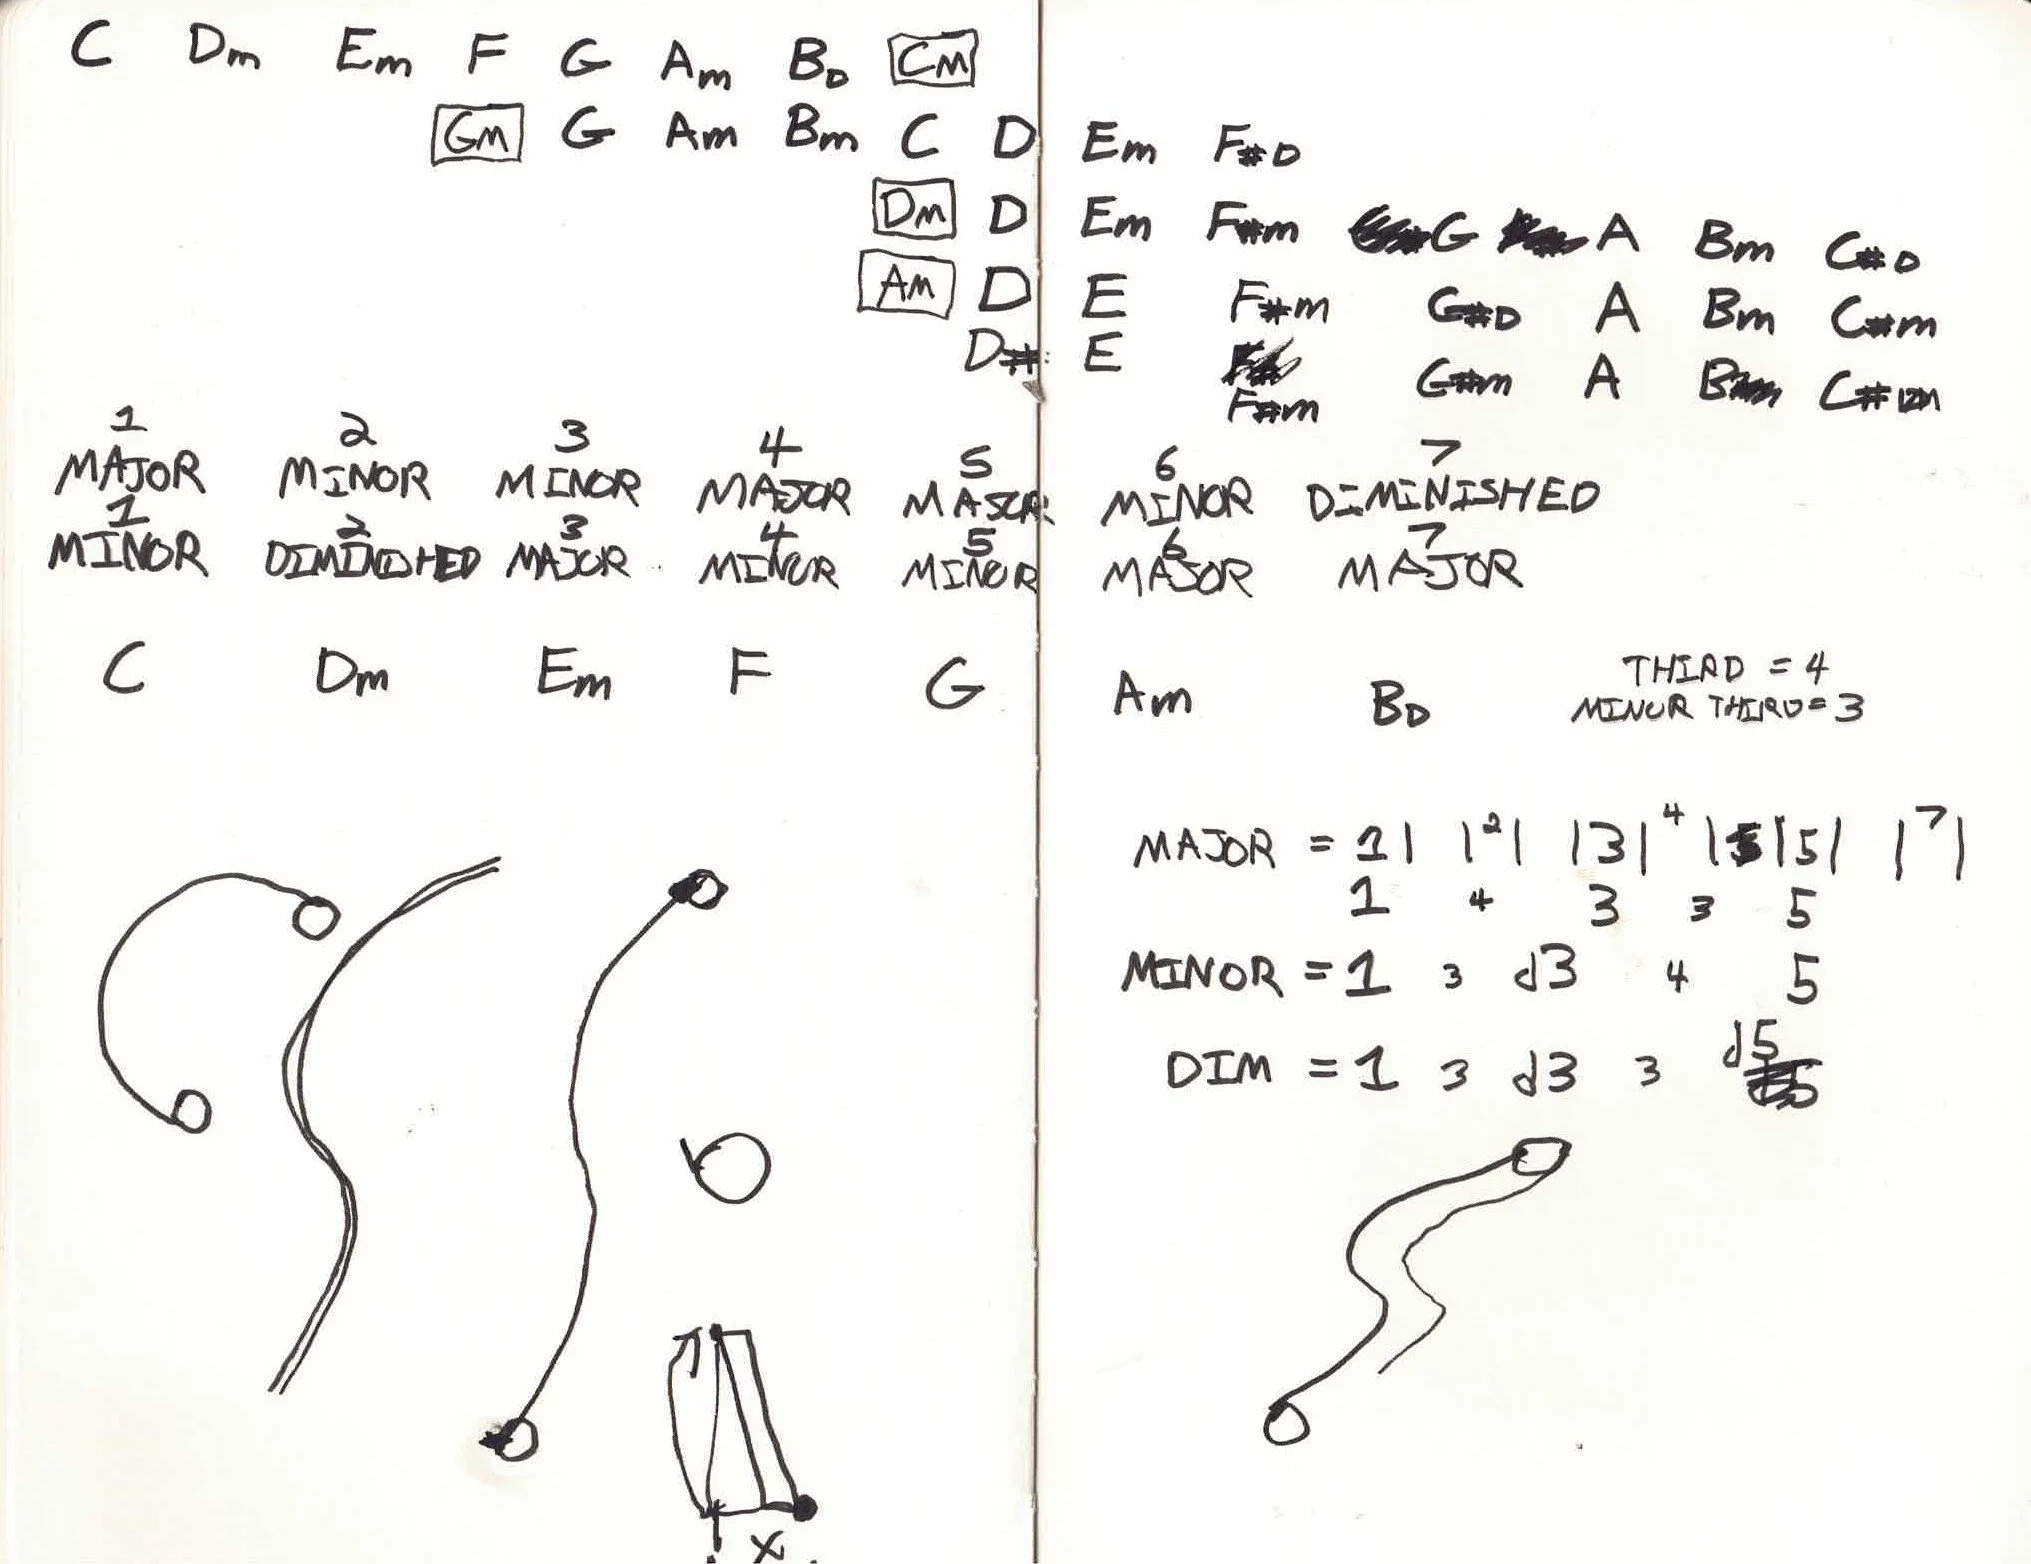 C Dm Em F G Am BD CM
GM G Am Bm C D Em F#D
DM D Em F#m G A Bm C#D
AM D E F#m G#D A Bm C#m
D# E F#m G#m A B C#m
1 2 3 4 5 6 7
MAJOR MINOR MINOR MAJOR MAJOR MINOR DIMINISHED
1 2 3 4 5 6 7
MINOR DIMINISHED MAJOR MINOR MINOR MAJOR MAJOR
C Dm Em F G Am BD
THIRD = 4
MINOR THIRD = 3
MAJOR = 1| |2| |3| 4 | |5| |7|
1 4 3 3 5
MINOR = 1 3 d3 4 5
DIM = 1 3 d3 3 d5
X